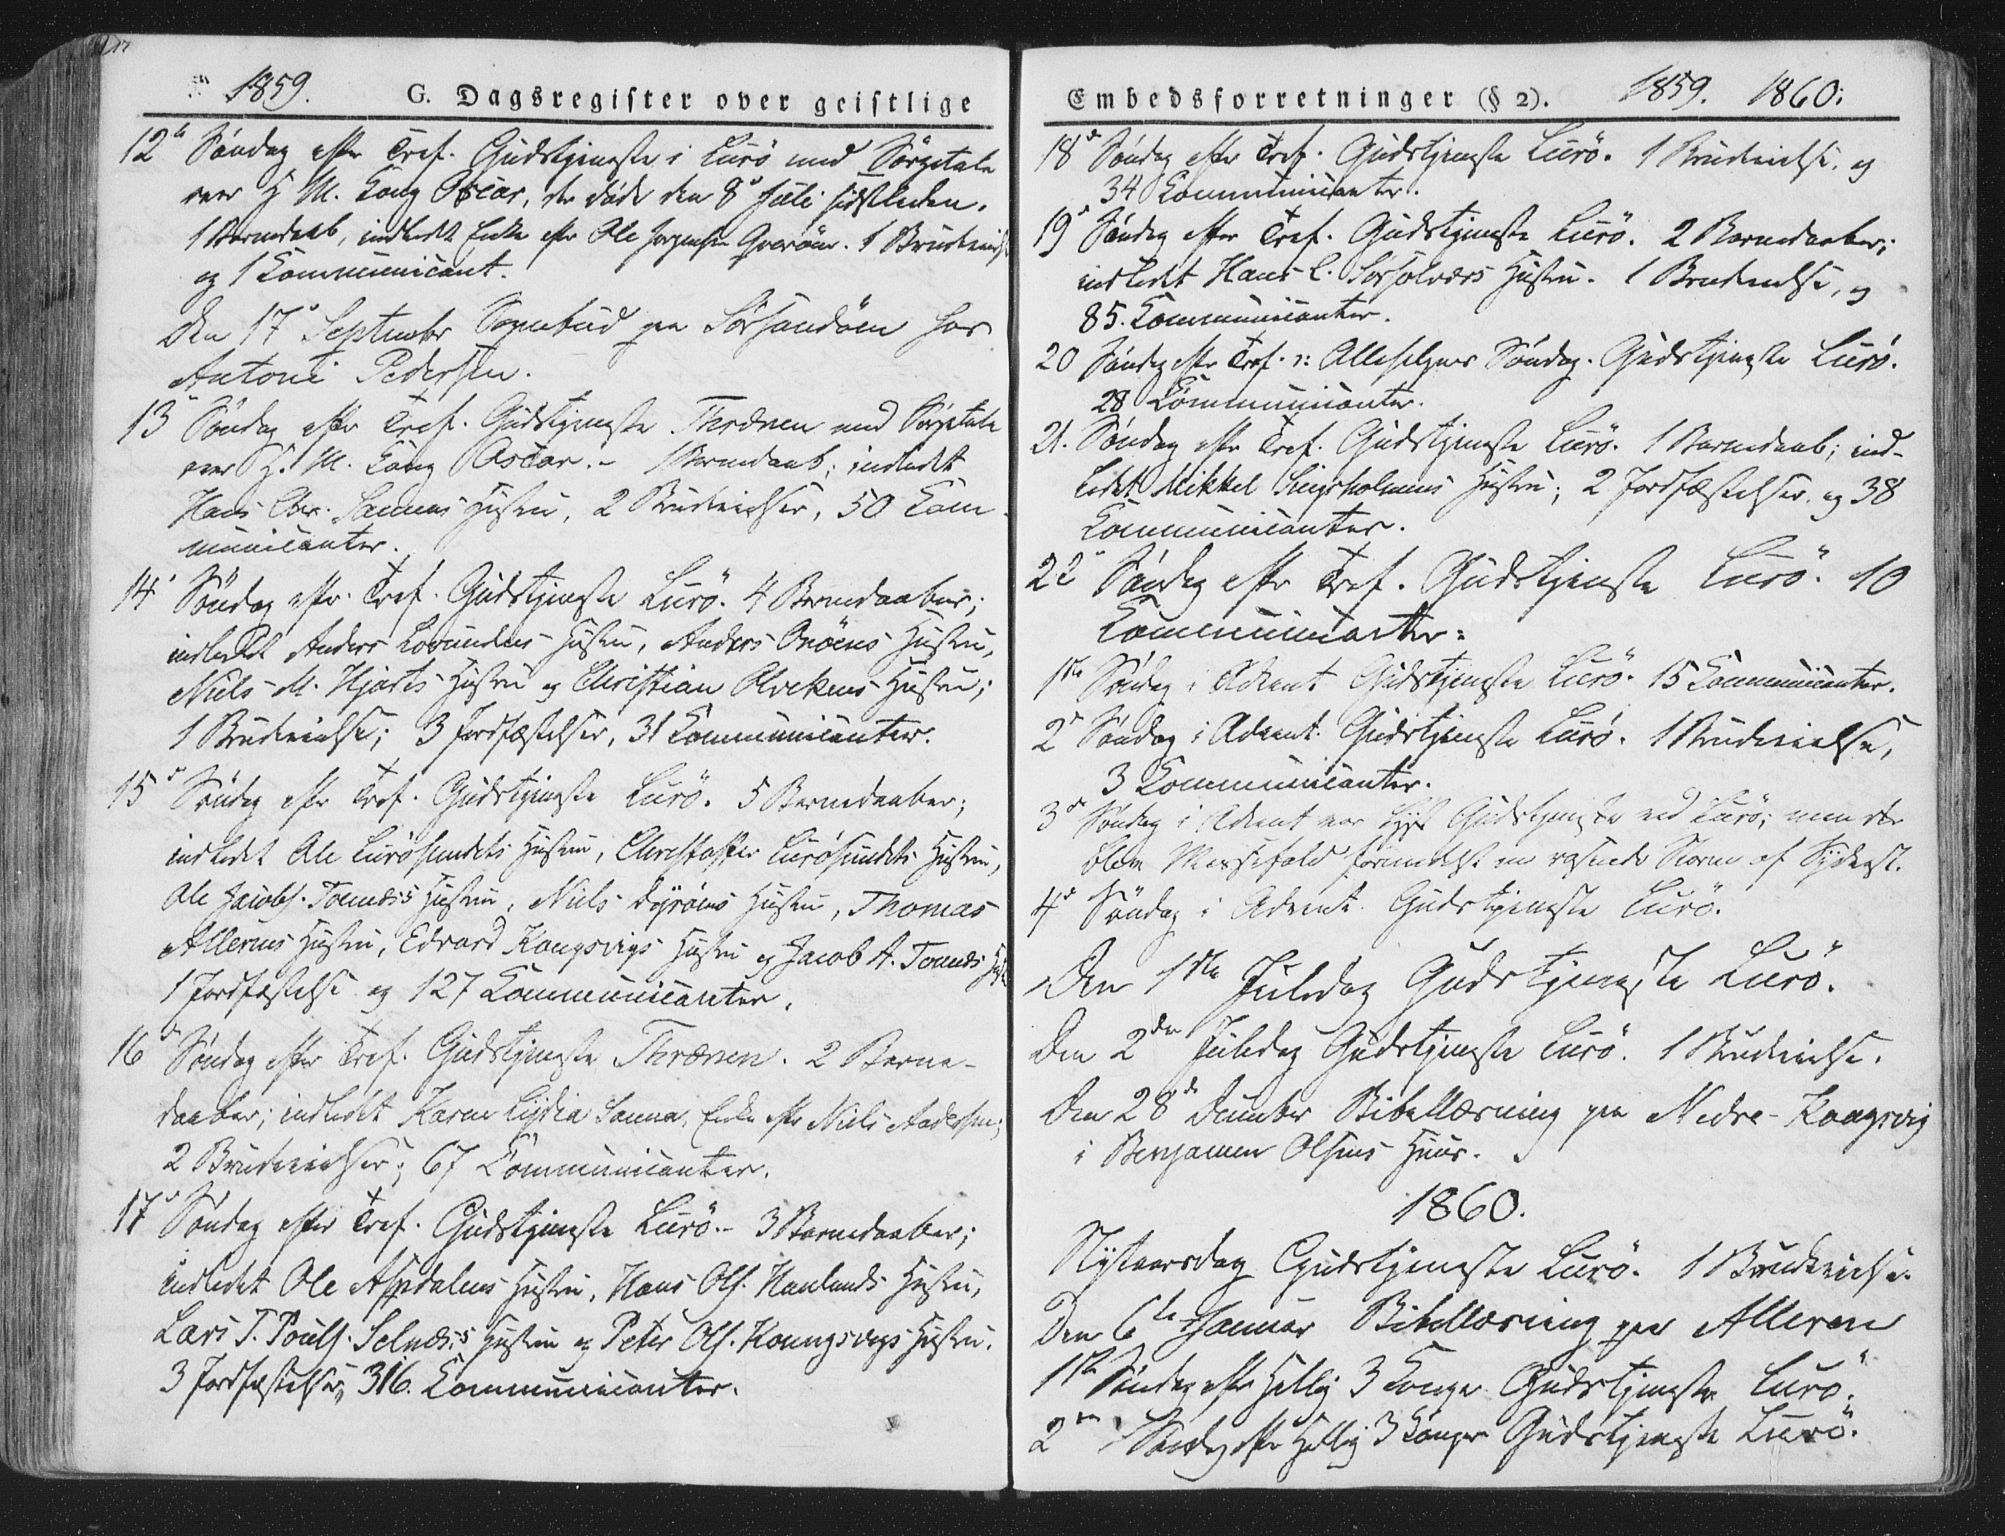 1859.
G. Dagsregister over geistlige
12te Søndag efter Tref. Gudstjeneste i Lurö med Sørgetale
over H. M. Kong Oscar, der døde den 8de Juli sidstleden.
1 Barnedaab, indledet Enke efter Ole Jørgensen. 1 Brudevielse
og 1 Communicant.
Den 17de September Sognebud paa Sörsandöen hos
Antoni Pedersen.
13 Søndag efter Tref. Gudstjeneste Thrænen med Sørgetale
over H. M. Kong Oscar. - 1 Barnedaab; indledet
Hans Chr. Sannas Hustru, 2 Brudevielser, 50 Com-
municanter.
14 Søndag efter Tref. Gudstjeneste Lurö. 4 Barnedaaber;
indledet Anders Lovundens Hustru, Anders Onöens Hustru,
Niels M. Hjarts Hustru og Christian Hustru;
1 Brudevielse; 3 Jordfæstelser, 31 Communicanter.
15de Søndag efter Tref. Gudstjeneste Lurö. 5 Barnedaaber;
indledet Ole Lurösundets Hustru, Christoffer Lurösundets Hustru,
Ole Jacobs. Tonnes's Hustru, Niels Dyröens Hustru, Thomas
Allerens Hustru, Edvard Kongsvigs Hustru og Jacob A. Tonnes
1 Jordfæstelse og 127 Communicanter.
16 Søndag efter Tref. Gudstjeneste Thrænen. 2 Barne-
daaber; indledet Karen Lydia Sanna, Enke efter Niels
2 Brudevielser; 67 Communicanter.
17de Søndag efter Tref. Gudstjeneste Lurö.- 3 Barnedaaber;
indledet Ole Aspdalens Hustru, Hans Ols. Haulands Hustru,
Lars T. Pouls. Selnæs's Hustru og Peter Ols. Kongsvigs Hustru.
3 Jordfæstelser, 316. Communicanter.
Embedsforretninger (§ 2).
1859. 1860.
18de Søndag efter Tref. Gudstjeneste Lurö. 1 Brudevielse, og
34 Communicanter.
19de Søndag efter Tref. Gudstjeneste Lurö. 2 Barnedaaber;
indledet Hans C. Sörsolværs Hustru. 1 Brudevielse, og
85. Communicanter.
20 Søndag efter Tref. ɔ: Allehelgens Søndag. Gudstjeneste Lurö.
28 Communicanter.
21. Søndag efter Tref. Gudstjeneste Lurö. 1 Barnedaab; ind-
ledet Mikkel Hustru; 2 Jordfæstelser og 38
Communicanter.
22 Søndag efter Tref. Gudstjeneste Lurö. 10
Communicanter.
1ste Søndag i Advent Gudstjeneste Lurö. 15 Communicanter.
2de Søndag i Advent Gudstjeneste Lurö. 1 Brudevielse,
3 Communicanter.
3de Søndag i Advent var lyst Gudstjeneste ved Lurö; men der
blev Messefald formedelst en rasende Storm af Sydvest.
4de Søndag i Advent Gudstjeneste Lurö.
Den 1ste Juledag Gudstjeneste Lurö.
Den 2den Juledag Gudstjeneste Lurö. 1 Brudevielse.
Den 28de December Bibellæsning paa Nedre-Kongsvig
i Benjamin Olsens Huus.
1860.
Nytaarsdag Gudstjeneste Lurö. 1 Brudevielse.
Den 6te Januar Bibellæsning paa Alleren
1ste Søndag efter Hellig 3 Konger Gudstjeneste Lurö.
2den Søndag efter Hellig 3 Konger Gudstjeneste Lurö.